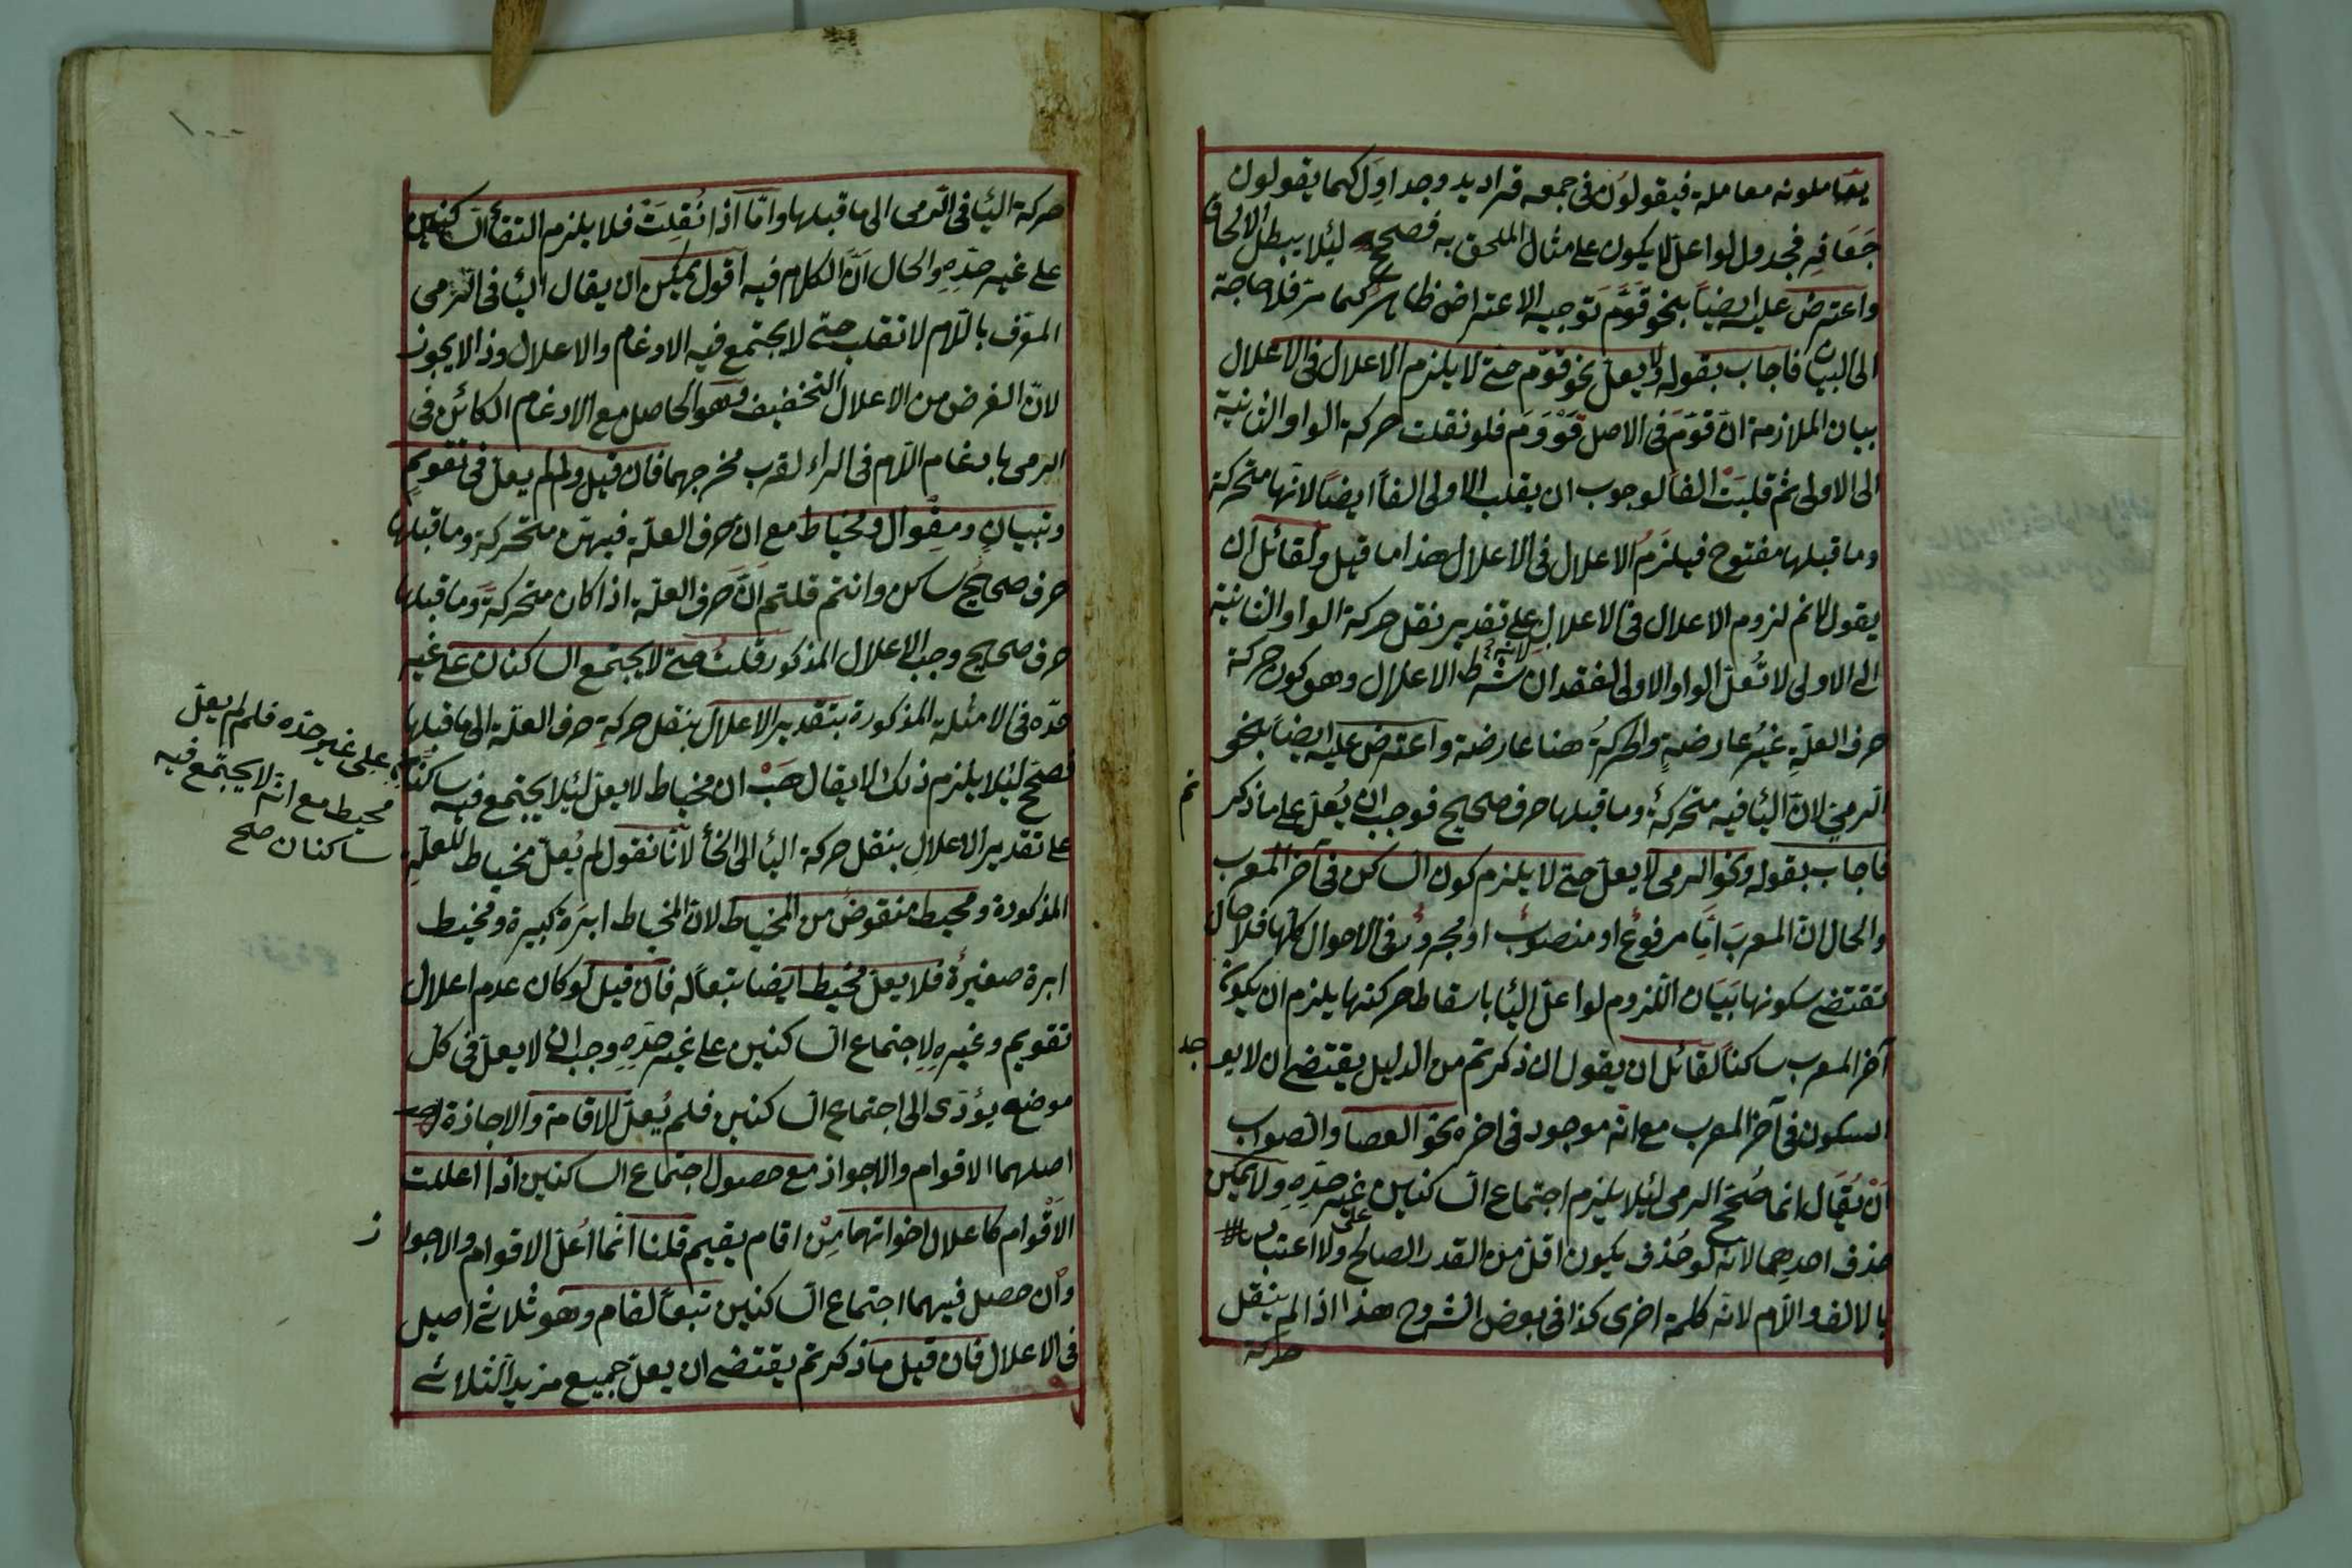 يعاملونه معاملة فيقولون فى جمعه قراديد وجداول كما يقولون
جعافر فجدول لو اعل لا يكون على مثال الملحق به فصحح لئلا يبطل الالحاق
واعترض عليه ايضا بنحو قوم توجيه الاعتراض ظاهر كما مر فلا حاجة
الى البيان فاجاب بقوله ولا يعل نحو قوم حتى لا يلزم الاعلال فى الاعلال
بيان الملازمة ان قوم فى الاصل قووم فلو نقلت حركة الواو الثانية
الى الاولى ثم قلبت الفا لوجوب ان يقلب الاولى الفا ايضا لانها متحركة
وما قبلها مفتوح فيلزم الاعلال فى الاعلال هذا ما قيل ولقائل ان
يقول لا نم لزوم الاعلال فى الاعلال على تقدير نقل حركة الواو الثانية
الى الاولى لا تعل الواو الاولى لفقدان شرط الاعلال وهو كون حركة
لانه
حرف العلة غير عارضة والحركة هنا عارضة واعترض عليه ايضا بنحو
الرمى لان اليا فيه متحركة وما قبلها حرف صحيح فوجب ان يعل على ما ذكر تم
فاجاب بقوله ونحو الرمى لا يعل حتى لا يلزم كون الساكن فى آخر المعرب
والحال ان المعرب اما مرفوع او منصوب او مجرور فى الاحوال كلها فلا حال
تقتضى سكونها بيان اللزوم لو اعل اليا باسقاط حركتها يلزم ان يكون
آخر المعرب ساكنا لقائل ان يقول ان ذكرتم من الدليل يقتضى ان لا يو جد
السكون فى آخر المعرب مع انه موجود فى اخره نحو العصا والصواب
ان يقال انما صحح الرمى لئلا يلزم اجتماع الساكنين غير حده ولا يمكن
على
حذف احديهما لانه لو حذف يكون اقل من القدر الصالح ولا اعتبار
بالالف واللام لانه كلمة اخرى كذا فى بعض الشروح هذا اذا لم ينقل
حركة
١٠٠
حركة اليا فى الرمى الى ما قبلها واما اذا نقلت فلا يلزم التقا الساكنين
على غير حده والحال ان الكلام فيه اقول يمكن ان يقال اليا فى الرمى
المعرف باللام لا تقلب حتى لا يجتمع فيه الادغام والاعلال وذا لا يجوز
لان الغرض من الاعلال التخفيف وهو الحاصل مع الادغام الكائن فى
الرمى بادغام اللام فى الراء لقرب مخرجهما فان قيل ولم لم يعل فى تقويم
وتبيان ومقوال ومخياط مع ان حرف العلة فيهن متحركة وما قبلها
حرف صحيح ساكن وانتم قلتم ان حرف العلة اذا كان متحركة وما قبلها
حرف صحيح وجب الاعلال المذكور قلت حتى لا يجتمع الساكنان على غير
حده فى الامثلة المذكورة بتقدير الاعلال بنقل حركة حرف العلة الى ما قبلها
فصحح لئلا يلزم ذلك لا يقال هب ان مخياط لا يعل لئلا يجتمع فيه ساكنان
على غير حده فلم لم يعل
مخيط مع انه لا يجتمع فيه
ساكنان صح
على تقدير الاعلال بنقل حركة اليا الى الخا لانا نقول لم يعل مخياط للعلة
المذكورة ومخيط منقوض من المخياط لان المخياط ابرة كبيرة ومخيط
ابرة صغيرة فلا يعل مخيط ايضا تبعا له فان قيل لو كان عدم اعلال
تقويم وغيره لاجتماع الساكنين على غير حده وجب ان لا يعل فى كل
موضع يؤدى الى اجتماع الساكنين فلم يعل الاقامة والاجازة
اصلهما الاقوام والاجواز مع حصول اجتماع الساكنين اذا اعللت
الاقوام كاعلال اخواتهما من اقام يقيم قلنا انما اعل الاقوام والاجوا ز
وان حصل فيهما اجتماع الساكنين تبعا لقام وهو ثلاثى اصيل
فى الاعلال فان قيل ما ذكرتم يقتضى ان يعل جميع مزيد الثلاثى